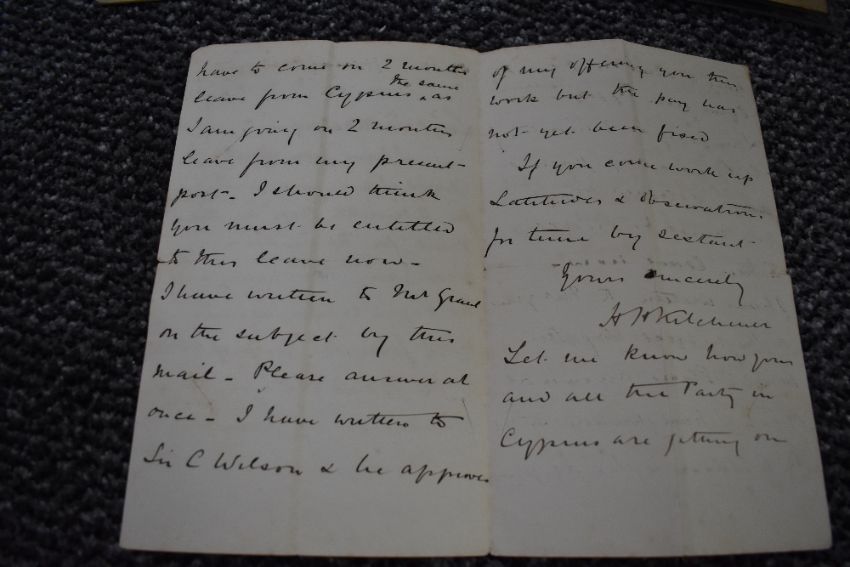 have to come on 2 months
the same
leave from Cyprus as
I am going on 2 months
leave from my present
post - I should think
you must be entitled
to this leave now -
I have written to Mr Grant
on the subject by this
mail - Please answer at
once - I have written to
Sir C Wilson & he approves
of my offering you this
work but the pay has
not yet been fixed
If you come work up
Latitudes & observations
for time by sextant
Yours sincerely
HHKitchener
Let me know how you
and all the Party in
Cyprus are getting on